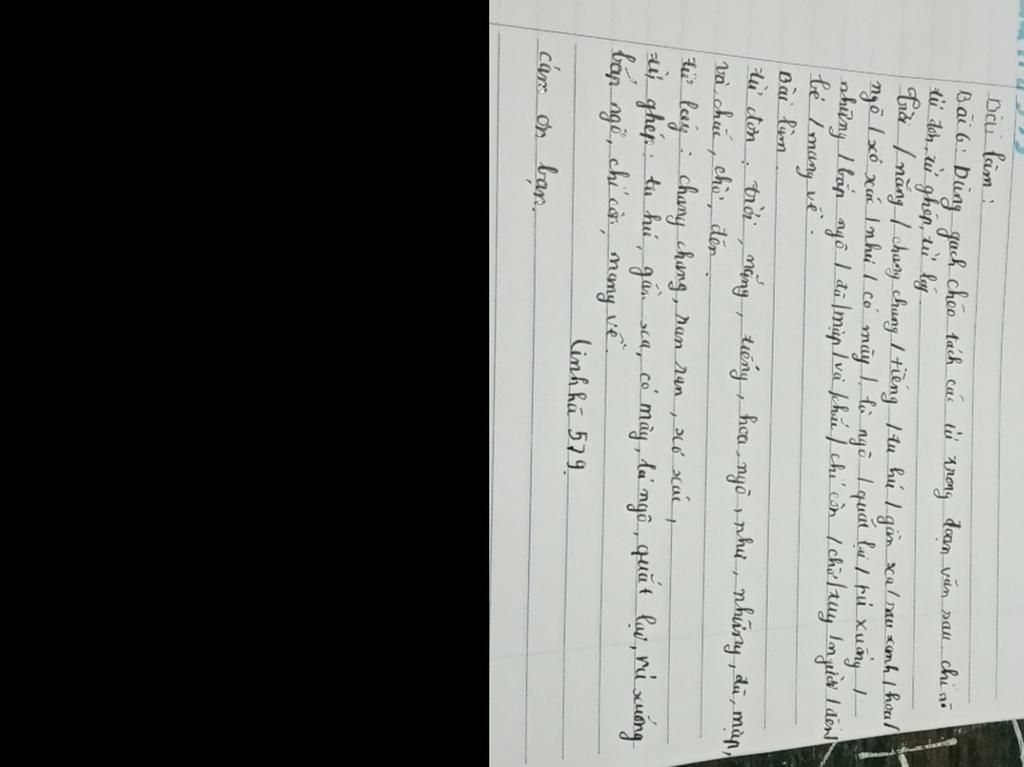 Bài làm:
Bài 6: Dùng gạch chéo tách các từ trong đoạn văn sau. chỉ rõ
từ đơn, từ ghép, từ láy.
Trời / nắng / chang chang / tiếng / tu hú / gần xa / ran ran / hoa /
ngô / xơ xác / như / cỏ mây / lá ngô / quắt lại / rủ xuống /
những / bắp ngô / đã / mập / và / chắc / chỉ còn / chờ / tay / người / đến /
bẻ / mang về.
Bài làm
từ đơn: trời, nắng, tiếng, hoa, ngô, như, những, đã, mập,
và chắc, chờ, đến.
từ láy: chang chang, ran ran, xơ xác,
từ ghép: tu hú, gần xa, cỏ mây, lá ngô, quắt lại, rủ xuống
bắp ngô, chỉ còn, mang về.
linhhà 579.
cám ơn bạn.